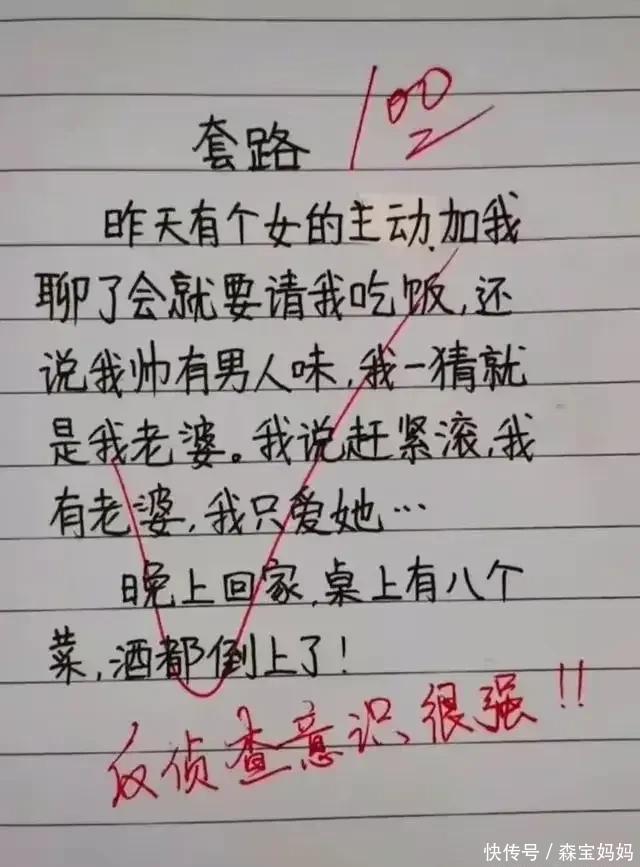 套路
100
昨天有个女的主动,加我
聊了会就要请我吃饭,还
说我帅有男人味,我一猜就
是我老婆。我说赶紧滚,我
有老婆,我只爱她…
晚上回家,桌上有八个
菜,酒都倒上了!
反侦查意识很强!!
快传号/森宝妈妈